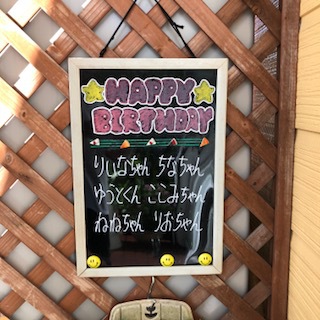 HAPPY
BIRTHDAY
りいなちゃん ちなちゃん
ゆうとくん ここみちゃん
ねねちゃん りおちゃん